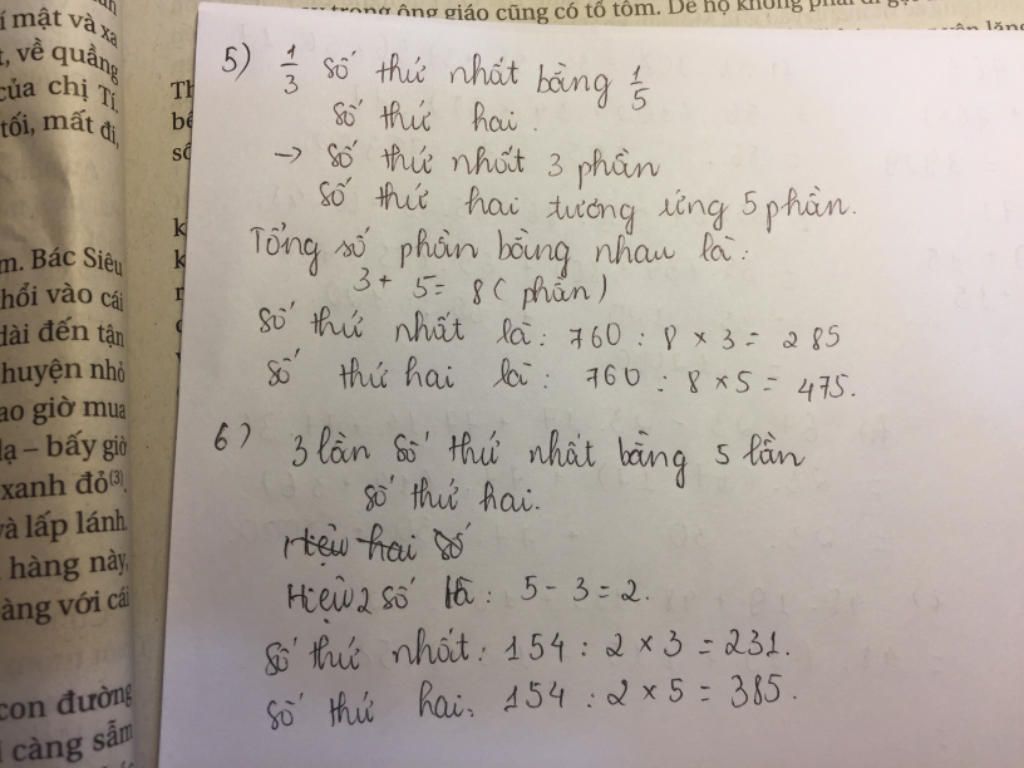 trong ông giáo cũng có tổ tôm. Dễ họ không phải đi
í mật và xa
t, về quầng
của chị Tí.
tối, mất đi,
m. Bác Siêu
hổi vào cái
dài đến tận
huyện nhỏ
ao giờ mua
lạ – bấy giờ
xanh đỏ(3).
và lấp lánh
hàng này,
àng với cái
con đường
càng sẫm
5) 1/3 số thứ nhất bằng 1/5
số thứ hai.
-> số thứ nhất 3 phần
số thứ hai tương ứng 5 phần.
Tổng số phần bằng nhau là:
3 + 5 = 8 (phần)
số thứ nhất là: 760 : 8 x 3 = 285
số thứ hai là: 760 : 8 x 5 = 475.
6) 3 lần số thứ nhất bằng 5 lần
số thứ hai.
Hiệu hai số
Hiệu 2 số là: 5 - 3 = 2.
số thứ nhất: 154 : 2 x 3 = 231.
số thứ hai: 154 : 2 x 5 = 385.